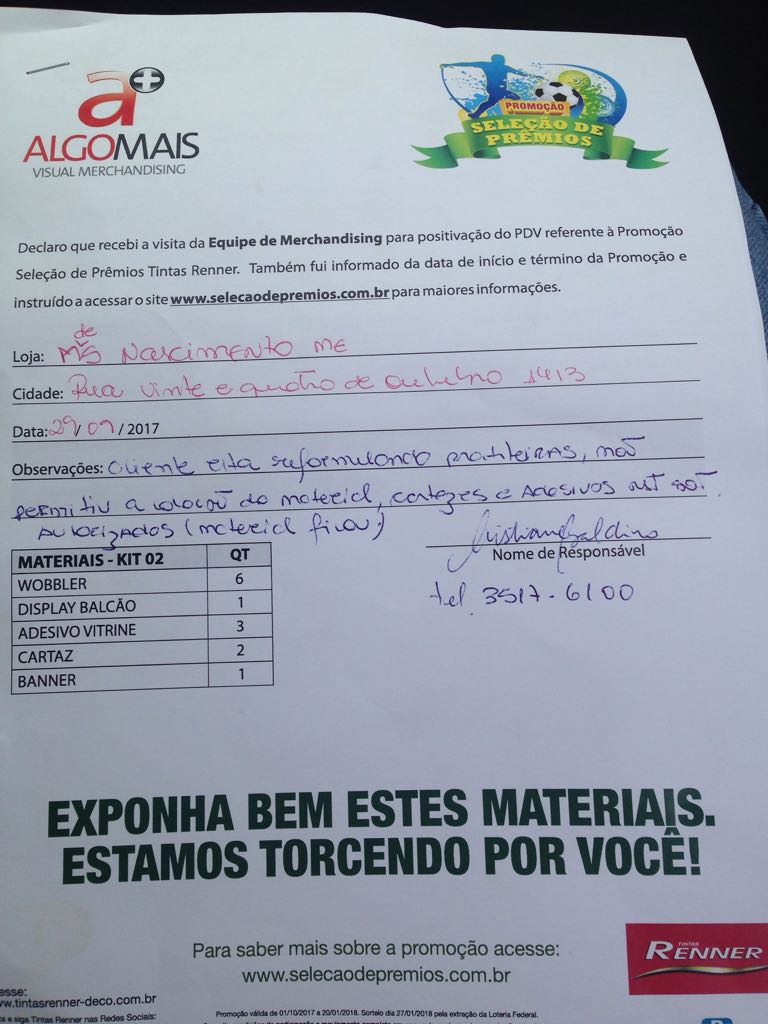 a+
ALGOMAIS
VISUAL MERCHANDISING
PROMOÇÃO
SELEÇÃO DE
PRÊMIOS
Declaro que recebi a visita da Equipe de Merchandising para positivação do PDV referente à Promoção
Seleção de Prêmios Tintas Renner. Também fui informado da data de início e término da Promoção e
instruído a acessar o site www.selecaodepremios.com.br para maiores informações.
Loja: MS de Nascimento ME
Cidade: Rua vinte e quatro de outubro 1413
Data: 29/09/2017
Observações: Cliente esta reformulando prateleiras, não
permitiu a colocação do material, cartazes e adesivos não são
autorizados (material ficou)
Nome de Responsável
tel 3517-6100
MATERIAIS - KIT 02 QT
WOBBLER 6
DISPLAY BALCÃO 1
ADESIVO VITRINE 3
CARTAZ 2
BANNER 1
EXPONHA BEM ESTES MATERIAIS.
ESTAMOS TORCENDO POR VOCÊ!
TINTAS
RENNER
Para saber mais sobre a promoção acesse:
www.selecaodepremios.com.br
esse:
w.tintasrenner-deco.com.br
a e siga Tintas Renner nas Redes Sociais:
Promoção válida de 01/10/2017 a 20/01/2018. Sorteio dia 27/01/2018 pela extração da Loteria Federal.